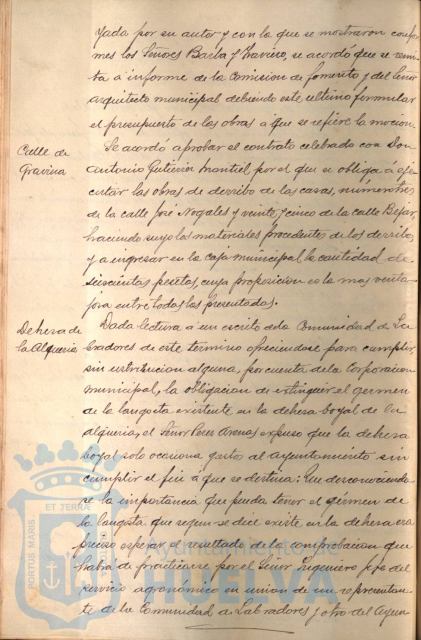 yada por su autor y con lo que se mostraron confor
mes los Señores Barba y Gravino, se acordó que se remi
ta a informe de la Comision de fomento y del Señor
arquitecto municipal debiendo este ultimo formular
el presupuesto de las obras a que se refiere la mocion.
Calle de
Gravina
Se acordó aprobar el contrato celebrado con Don
Antonio Gutierrez Montiel por el que se obliga á eje
cutar las obras de derribo de las casas, número tres
de la calle José Nogales y veinte y cinco de la calle Bejar,
haciendo suyo los materiales procedentes de los derribos
y a ingresar en la caja municipal la cantidad de
seiscientas pesetas, cuya proposicion es la mas venta
josa entre todas las presentadas.
Dehesa de
la Alqueria
Dada lectura á un escrito de la Comunidad de La
bradores de este termino ofreciendose para cumplir
sin retribucion alguna, por cuenta de la Corporacion
municipal, la obligacion de extinguir el germen
de la langosta existente en la dehesa boyal de la
alqueria, el Señor Peres Arenas expuso que la dehesa
boyal solo ocasiona gastos al ayuntamiento sin
cumplir el fin á que se destina: Que desconociendo
se la importancia que pueda tener el gérmen de
la langosta que segun se dice existe en la dehesa era
preciso esperar el resultado de la comprobacion que
habra de practicarse por el Señor Ingeniero jefe del
servicio agronómico en union de un representan
te de la Comunidad de Labradores y otro del Ayun
PORTUS MARIS ET TERRÆ
Ayuntamiento de
HUELVA